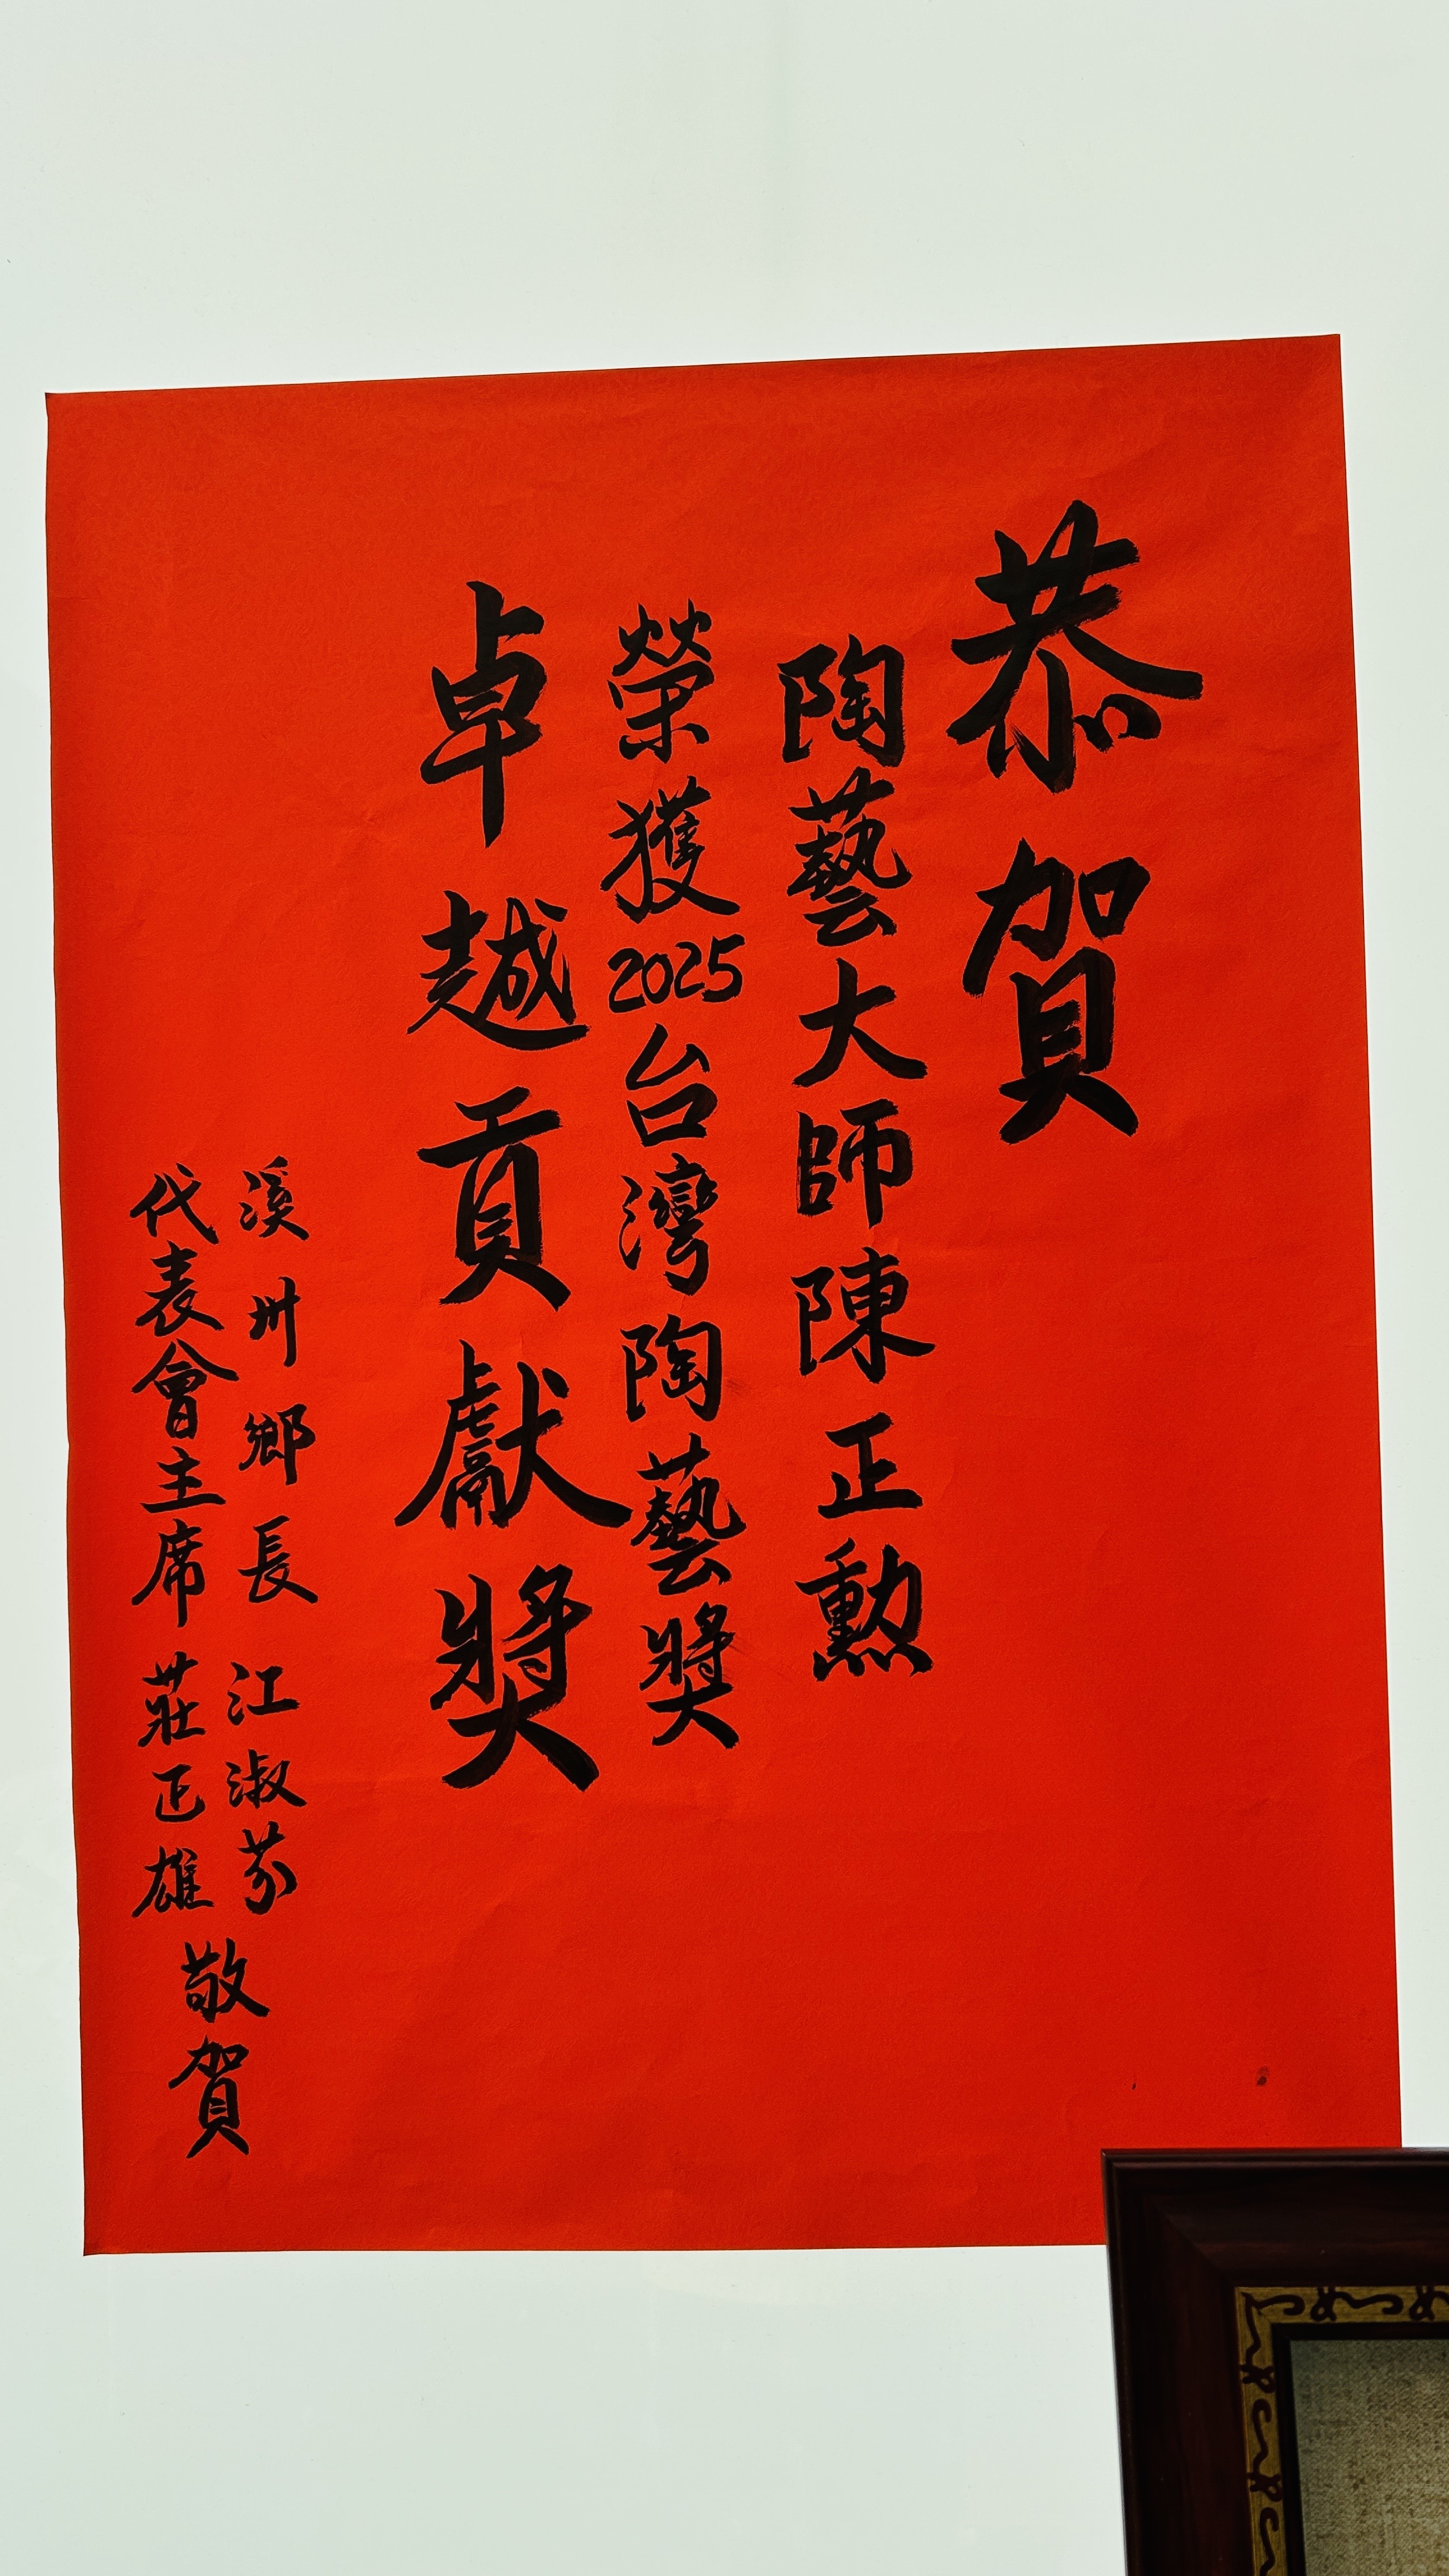 恭賀
陶藝大師陳正勲
榮獲2025台灣陶藝獎
卓越貢獻獎
溪州鄉長 江淑芬
代表會主席 莊正雄
敬賀